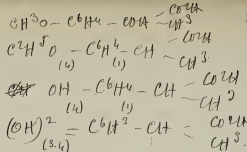 CH³O – C⁶H⁴ – COH = CO²H
CH³
C²H⁵O – C⁶H⁴ – CH = CO²H
CH³
(4) (1)
OH – C⁶H⁴ – CH CO²H
CH³
(4) (1)
(OH)² = C⁶H³ – CH = CO²H
CH³
(3.4)